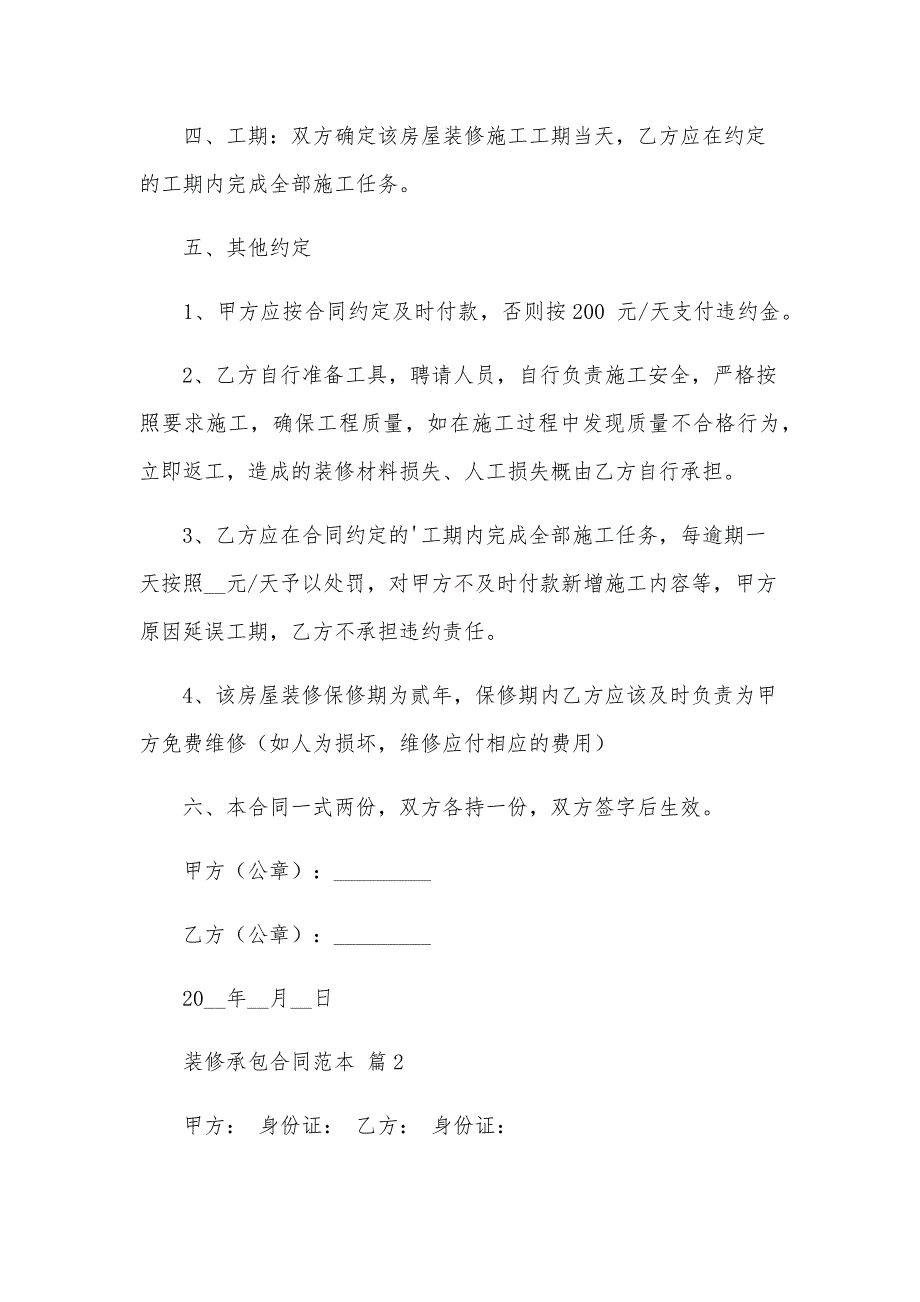 四、工期：双方确定该房屋装修施工工期当天，乙方应在约定
的工期内完成全部施工任务。
五、其他约定
1、甲方应按合同约定及时付款，否则按 200 元/天支付违约金。
2、乙方自行准备工具，聘请人员，自行负责施工安全，严格按
照要求施工，确保工程质量，如在施工过程中发现质量不合格行为，
立即返工，造成的装修材料损失、人工损失概由乙方自行承担。
3、乙方应在合同约定的'工期内完成全部施工任务，每逾期一
天按照__元/天予以处罚，对甲方不及时付款新增施工内容等，甲方
原因延误工期，乙方不承担违约责任。
4、该房屋装修保修期为贰年，保修期内乙方应该及时负责为甲
方免费维修（如人为损坏，维修应付相应的费用）
六、本合同一式两份，双方各持一份，双方签字后生效。
甲方（公章）：_________
乙方（公章）：_________
20__年__月__日
装修承包合同范本 篇2
甲方： 身份证： 乙方： 身份证：